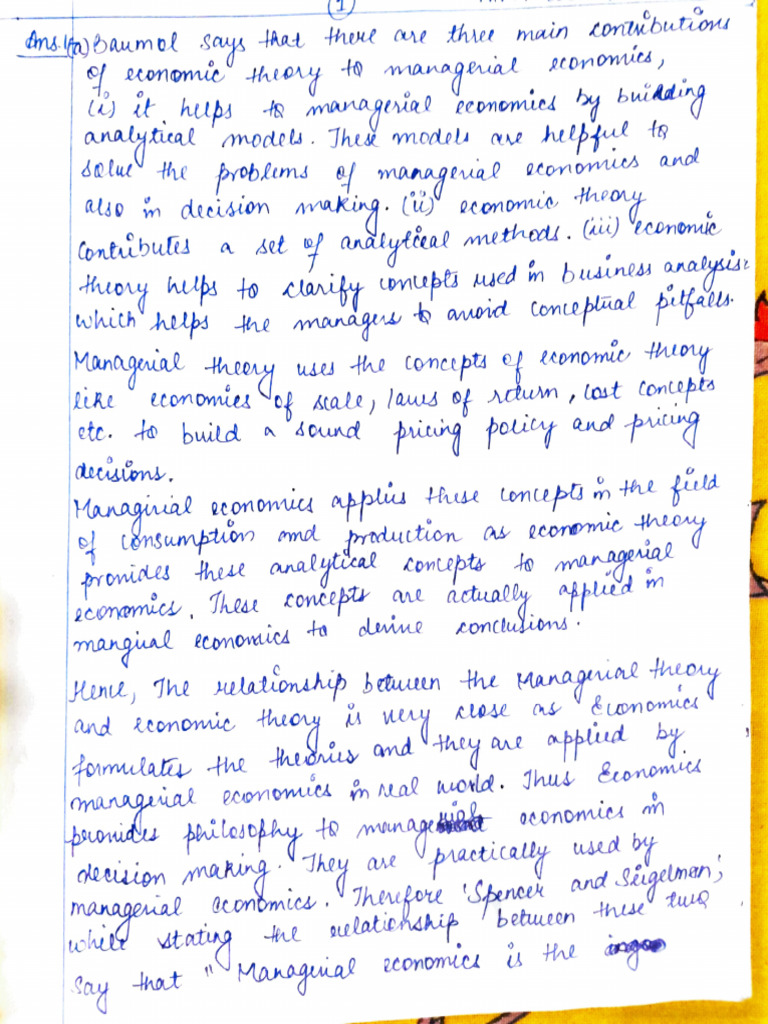 1
Ans.1(a) Baumol says that there are three main contributions
of economic theory to managerial economics,
(i) it helps to managerial economics by building
analytical models. These models are helpful to
solve the problems of managerial economics and
also in decision making. (ii) economic theory
contributes a set of analytical methods. (iii) economic
theory helps to clarify concepts used in business analysis
which helps the managers to avoid conceptual pitfalls.
Managerial theory uses the concepts of economic theory
like economies of scale, laws of return, cost concepts
etc. to build a sound pricing policy and pricing
decisions.
Managirial economics applies these concepts in the field
of consumption and production as economic theory
provides these analytical concepts to managerial
economics. These concepts are actually applied in
mangirial economics to derive conclusions.
Hence, The relationship between the Managerial theory
and economic theory is very close as Economics
formulates the theories and they are applied by
managerial economics in real world. Thus Economics
provides philosophy to managerial economics in
decision making. They are practically used by
managerial economics. Therefore 'Spencer and Seigelman',
while stating the relationship between these two
say that "Managerial economics is the